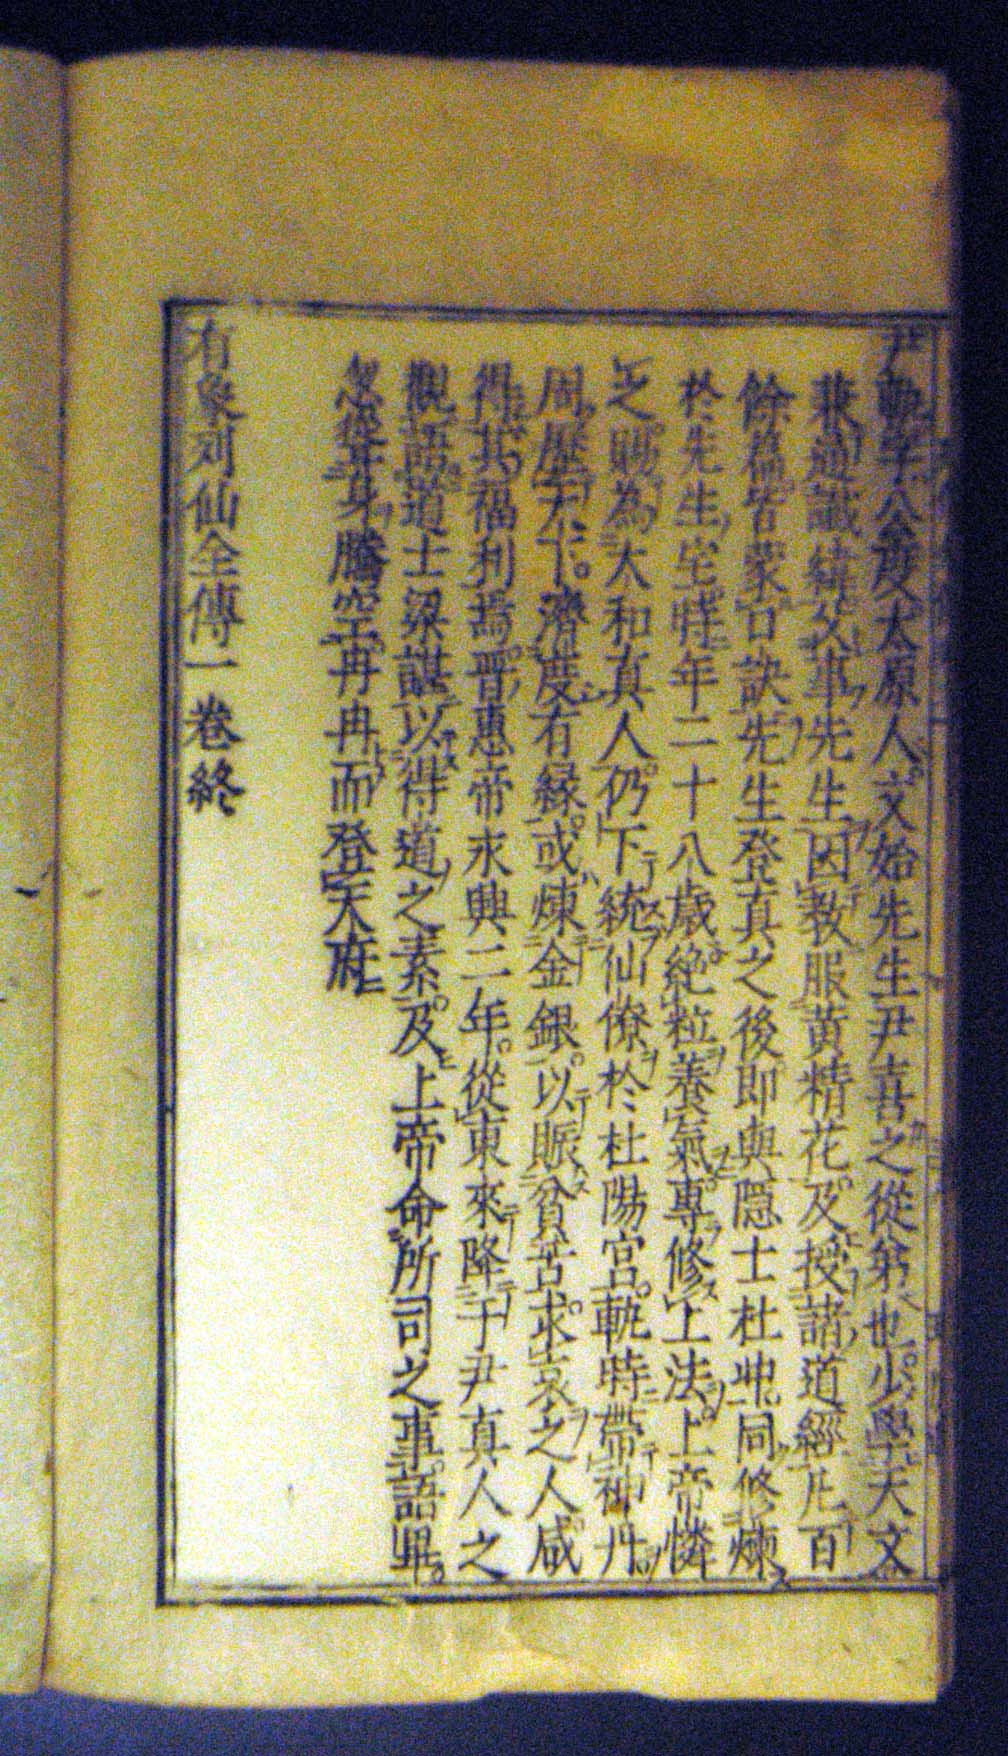 尹軌字公度太原人文始先生尹喜之從弟也少學天文
兼通讖緯父事先生因教服黄精花及授諸道經凡百
餘篇皆蒙口訣先生登真之後即與隠士杜冲同修煉
於先生宅時年二十八歳絶粒養氣專修上法上帝憐
之賜為太和真人仍下統仙僚於杜陽宫軌時帶神丹
周歴天下濟度有縁或煉金銀以賑貧苦求哀之人咸
得其福利焉晋惠帝永興二年從東來降于尹真人之
觀語道士梁諶以得道之素及上帝命所司之事語畢
忽聳身騰空冉冉而登天府
有象列仙全傳一卷終